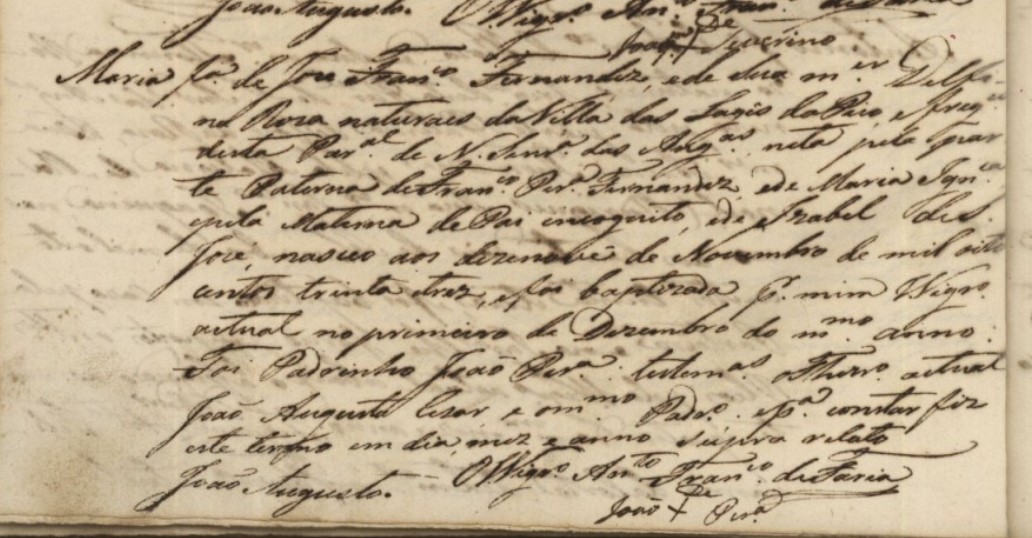 João Augusto. O Vigrº Anto Franco de Faria
De
Joaqm + Severino
Maria fª de Jose Franco Fernandez, e de Sua mer Delfi
na Roza naturaes da Villa das Lagis do Pico e freg
desta Paral de N. Senrª das Angas neta pela par
te Paterna de Franco Perª Fernandez e de Maria Ignca
e pela Materna de Pai incognito, e de Izabel de S.
José, nasceo aos dezenove de Novembro de mil oito
centos trinta e trez, e foi baptizada p. mim Vigrº
actual no primeiro de Dezembro do mmo anno.
Foi Padrinho João Perª. testemas o Thezrº actual
João Augusto Cezar e o mmo Padrº. e pª constar fiz
este termo em dia, mez e anno supra relato
João Augusto. O Vigrº Anto Franco de Faria
De
João + Perª